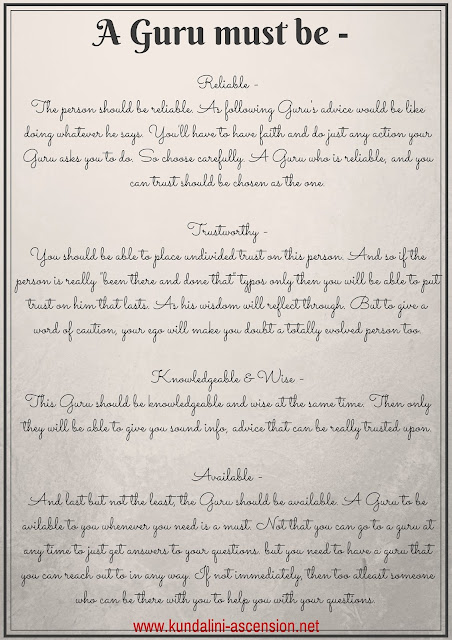 A Guru must be -
Reliable -
The person should be reliable. As following Guru's advice would be like
doing whatever he says. You'll have to have faith and do just any action your
Guru asks you to do. So choose carefully. A Guru who is reliable, and you
can trust should be chosen as the one.
Trustworthy -
You should be able to place undivided trust on this person. And so if the
person is really "been there and done that" typos only then you will be able to put
trust on him that lasts. As his wisdom will reflect through. But to give a
word of caution, your ego will make you doubt a totally evolved person too.
Knowledgeable & Wise -
This Guru should be knowledgeable and wise at the same time. Then only
they will be able to give you sound info, advice that can be really trusted upon.
Available -
And last but not the least, the Guru should be available. A Guru to be
avilable to you whenever you need is a must. Not that you can go to a guru at
any time to just get answers to your questions. but you need to have a guru that
you can reach out to in any way. If not immediately, then too atleast someone
who can be there with you to help you with your questions.
www.kundalini-ascension.net